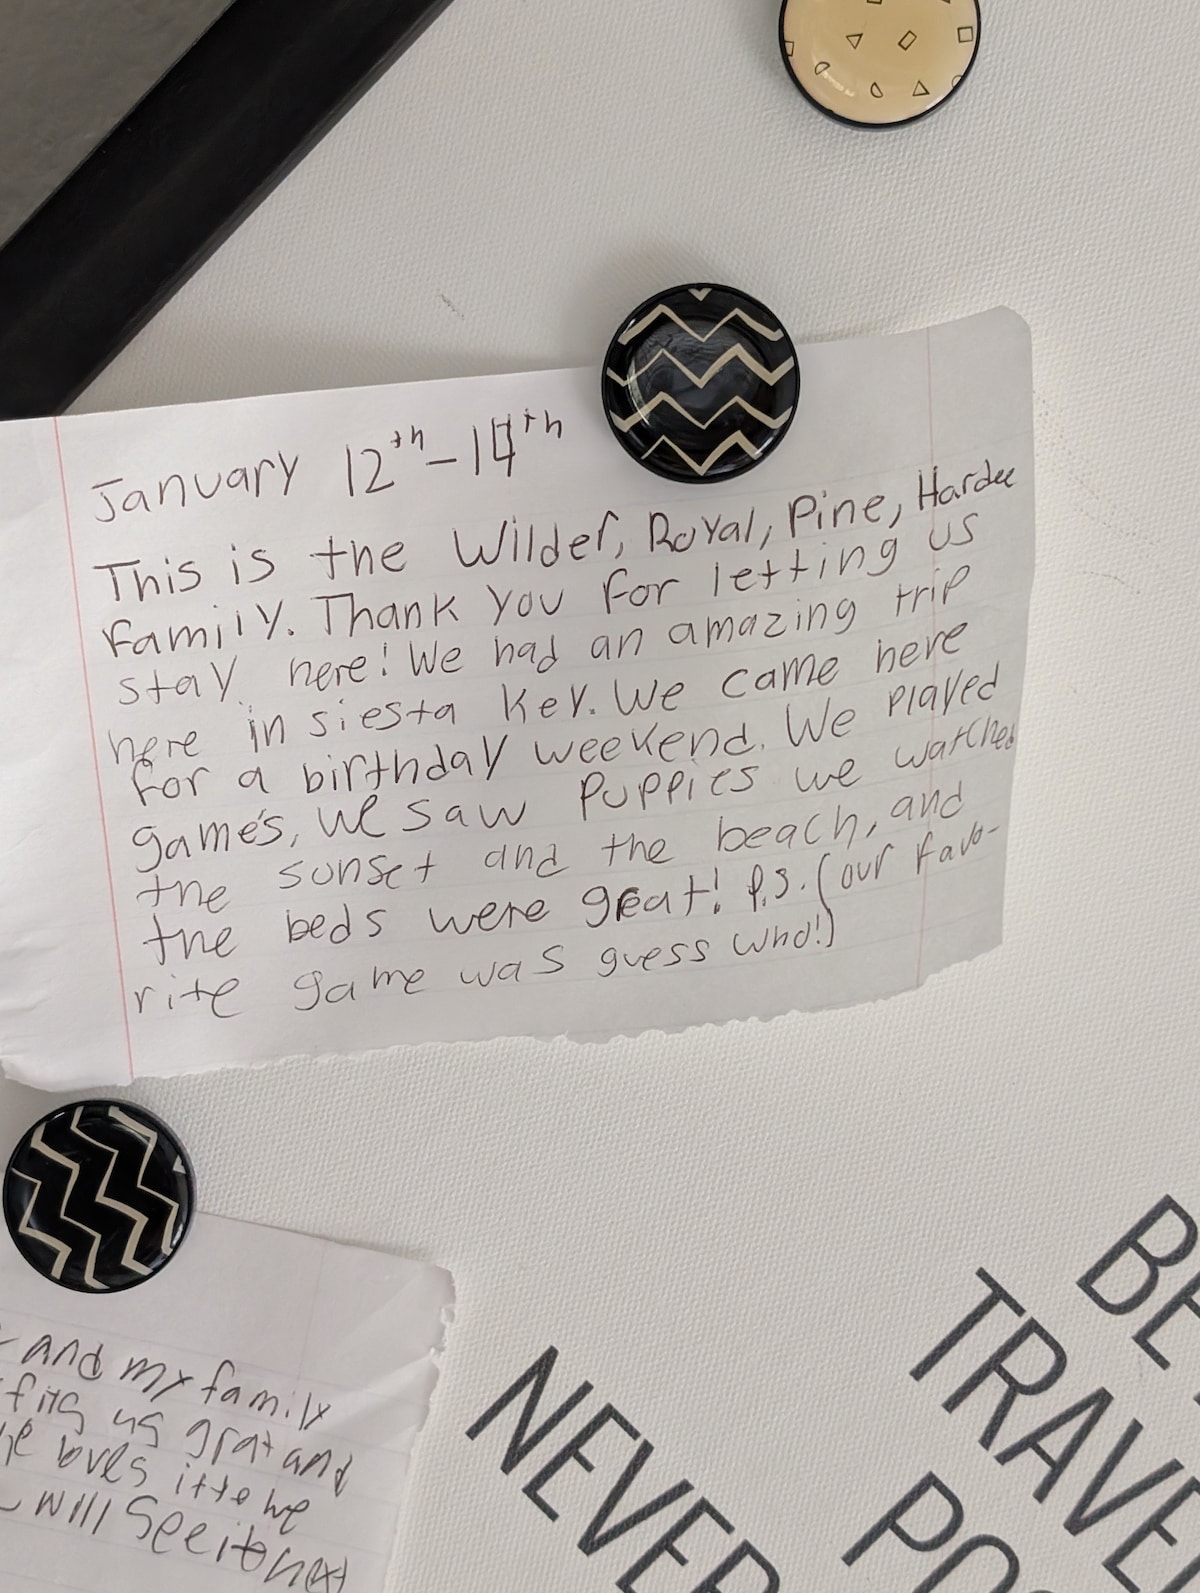 January 12th-14th
This is the Wilder, Royal, Pine, Hardee
family. Thank you for letting us
stay here! We had an amazing trip
here in siesta Key. We came here
for a birthday weekend. We played
game's, we saw puppies we watched
the sunset and the beach, and
the beds were great! P.S. (our favo-
rite game was guess who!)
and my family
us grat and
loves it to we
will See it next
BE
TRAVE
NEVER
PO